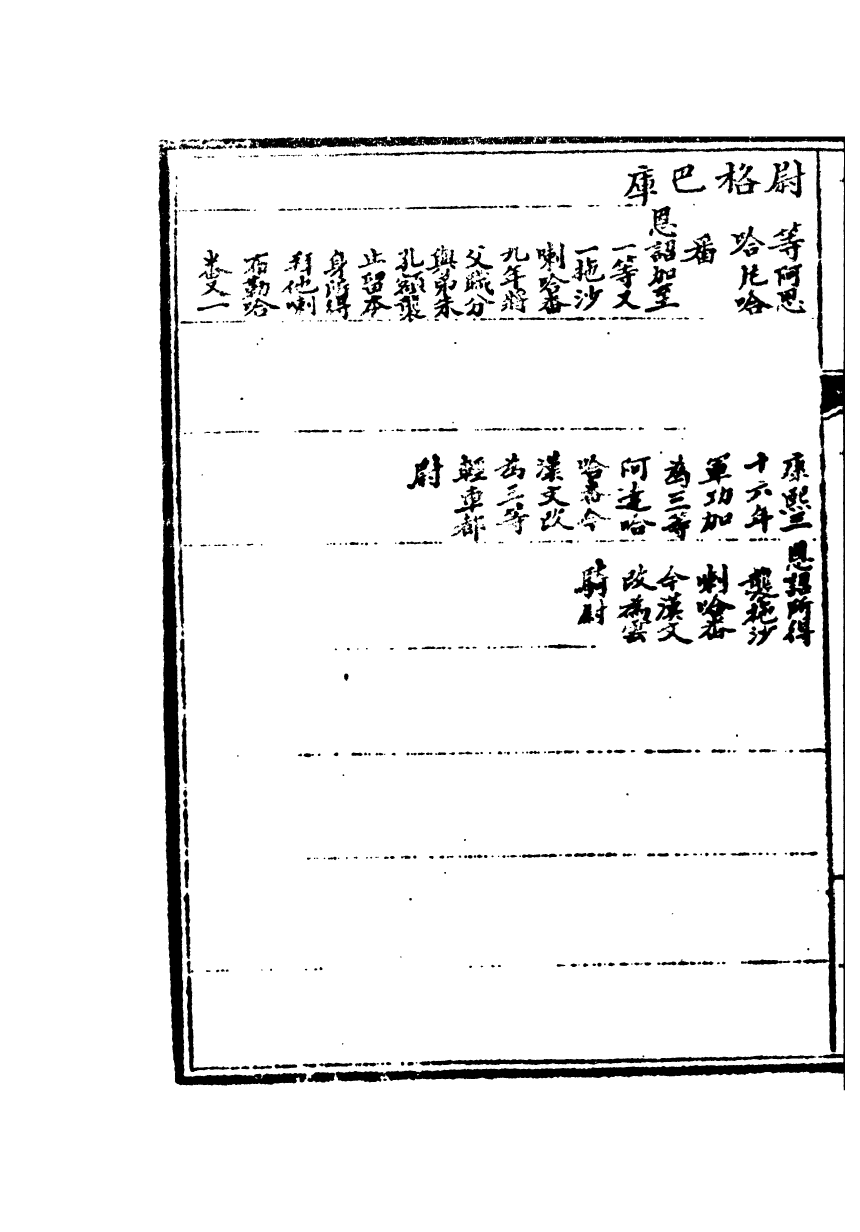 尉格巴庫
等阿思
哈尼哈
番
恩詔加至
一等又
一拖沙
喇哈番
九年將
父職分
與弟朱
孔額襲
止留本
身所得
拜他喇
布勒哈
番又一
康熙三
十六年
軍功加
為三等
阿達哈
哈番今
漢文改
為三等
輕車都
尉
恩詔所得
襲拖沙
喇哈番
今漢文
改為雲
騎尉